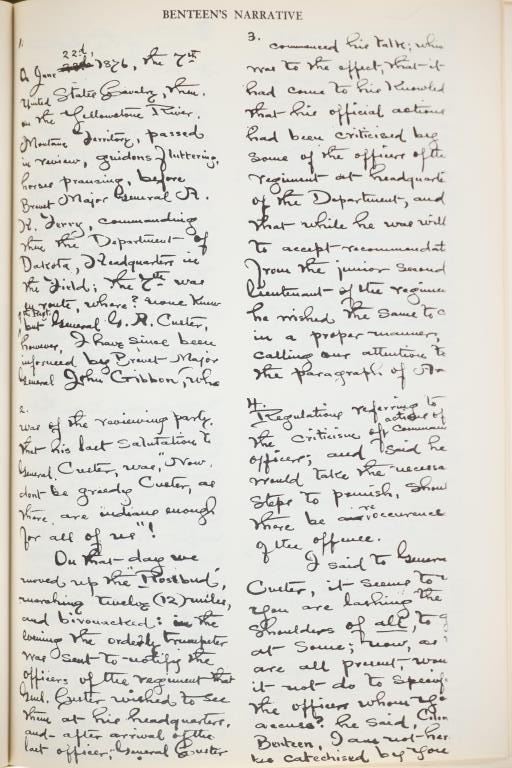 BENTEEN'S NARRATIVE
1.
22d,
On June 1876, the 7th
United States Cavalry, then
on the Yellowstone River,
Montana Territory, passed
in review, guidons fluttering,
horses prancing, before
Brevet Major General A.
H. Terry, commanding
then the Department of
Dakota, Headquarters in
the Field; the 7th was
en route, where? none knew
of the Regt.
but General G. A. Custer,
however, I have since been
informed by Brevet Major
General John Gibbon, who
2.
was of the reviewing party,
that his last salutation to
General Custer, was, "Now,
dont be greedy Custer, as
there are indians enough
for all of us"!
On that day we
moved up the "Rosebud",
marching twelve (12) miles,
and bivouacked: in the
evening the orderly trumpeter
was sent to notify the
officers of the regiment that
Genl. Custer wished to see
them at his headquarters,
and after arrival of the
last officer, General Custer
3.
commenced his talk; whic
was to the effect, that it
had come to his Knowled
that his official actions
had been criticised by
some of the officers of the
regiment at headquarte
of the Department, and
that while he was will
to accept recommendat
from the junior second
lieutenant of the regime
he wished the same to c
in a proper manner;
calling our attention to
the paragraph of Ar
4.
Regulations referring to
actions of
the criticism of Commani
officers; and said he
would take the necessa
steps to punish, shou
re
there be occurrence
of the offence.
I said to Genera
Custer, it seems to
you are lashing the
shoulders of all, to g
at some; now, as
are all present, wou
it not do to specif
the officers whom yo
accuse? he said, Colon
Benteen, I am not her
to be catechised by you